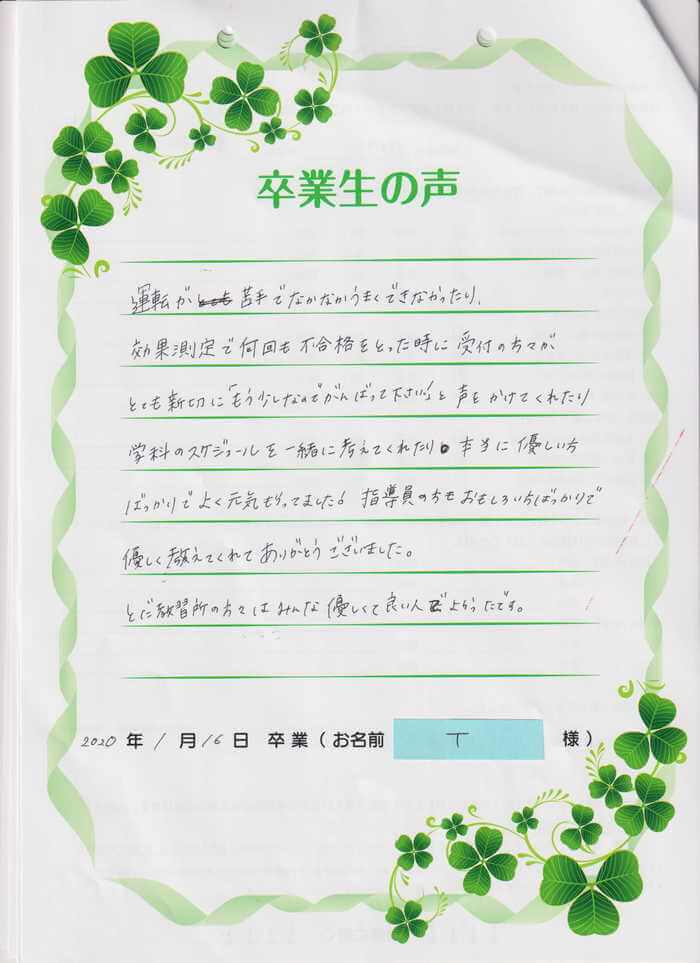 卒業生の声
運転が苦手でなかなかうまくできなかったり、
効果測定で何回も不合格をとった時に受付の方々が
とても親切に「もう少しなのでがんばって下さい」と声をかけてくれたり
学科のスケジュールを一緒に考えてくれたり。本当に優しい方
ばっかりでよく元気もらってました！指導員の方もおもしろい方ばっかりで
優しく教えてくれてありがとうございました。
とだ教習所の方々はみんな優しくて良い人でよかったです。
2020年1月16日 卒業（お名前 T 様）